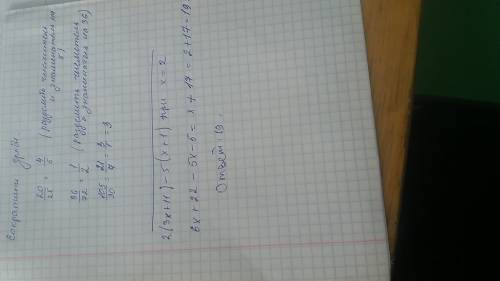 Сократить дроби
20/25 = 4/5 (разделить числитель
и знаменатель на
5)
36/72 = 1/2 (разделить числитель
и знаменатель на 36)
= 21/7 = 3/1 = 3
2(3x+11)-5(x+1) при x=2
6x+22-5x-5 = x+17 = 2+17=19.
Ответ: 19.